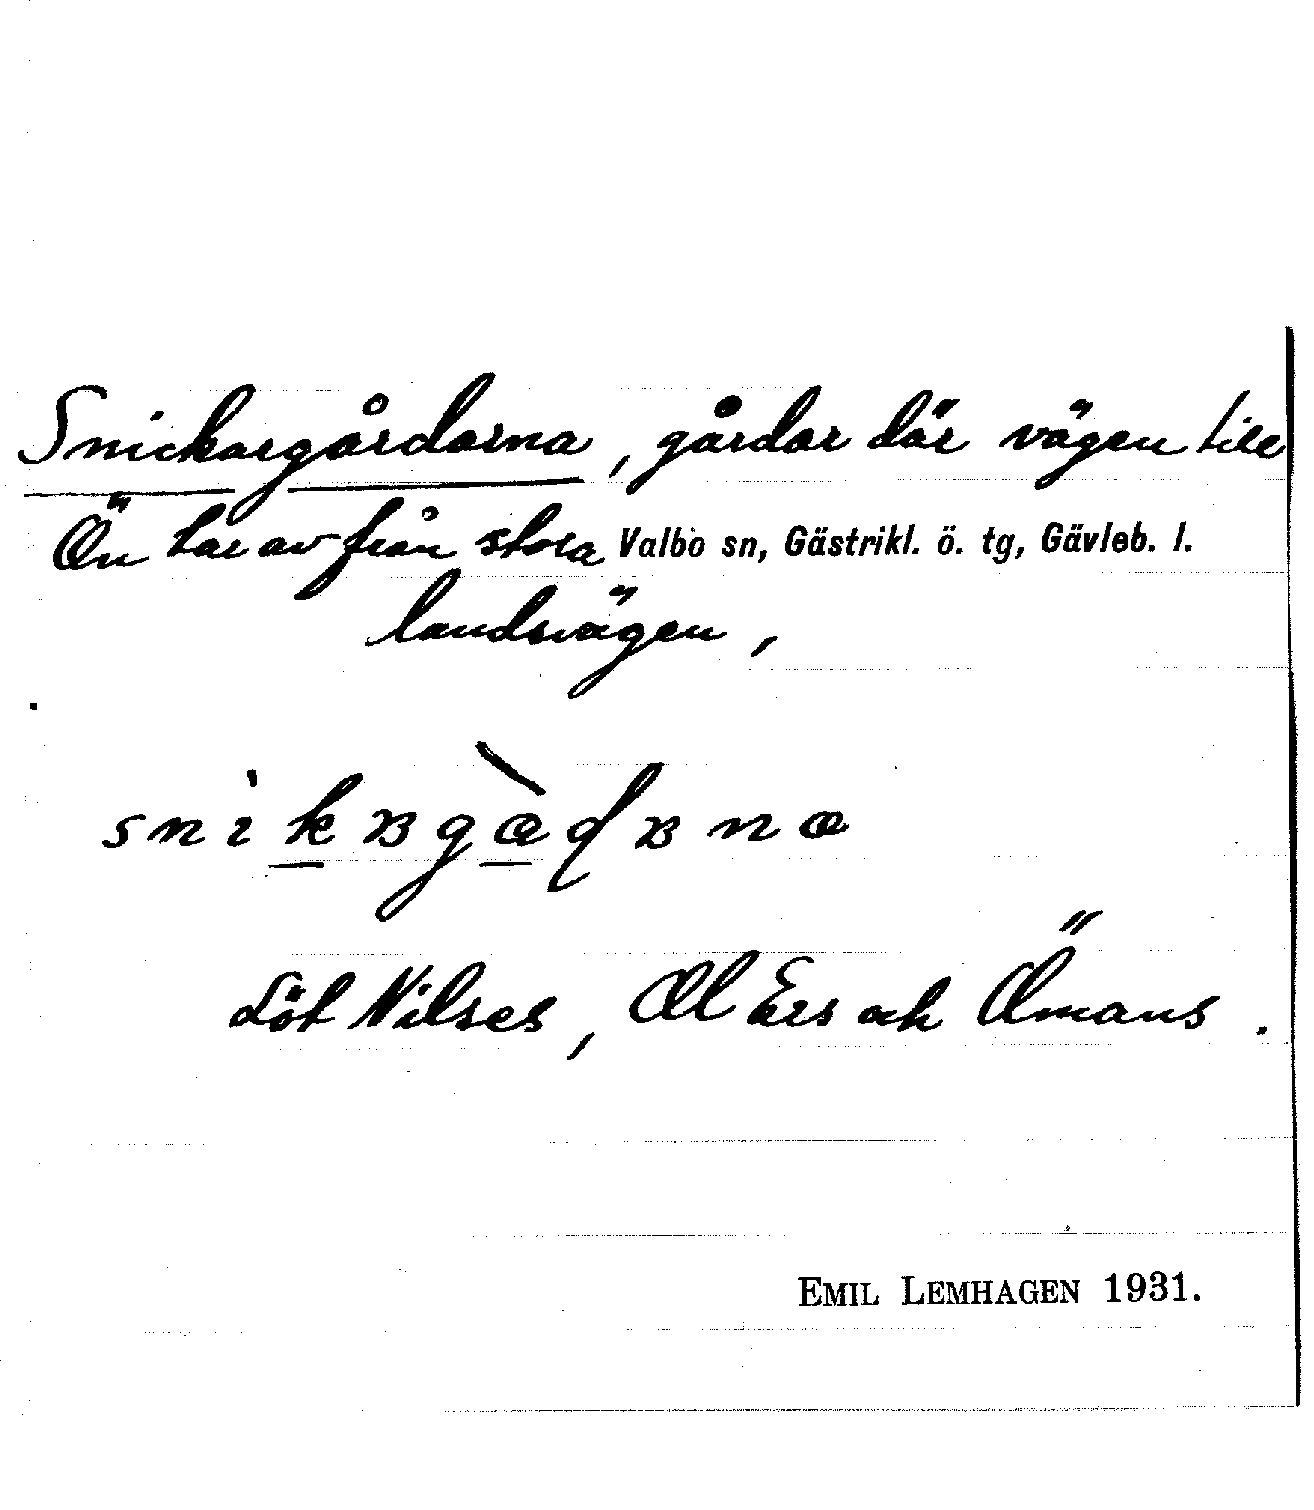 Snickargårdarna, gårdar där vägen till
Ön tar av från stora Valbo sn, Gästrikl. ö. tg, Gävleb. l.
landsvägen,
Löt Nilses, Ol Ers och Ömans.
EMIL LEMHAGEN 1931.